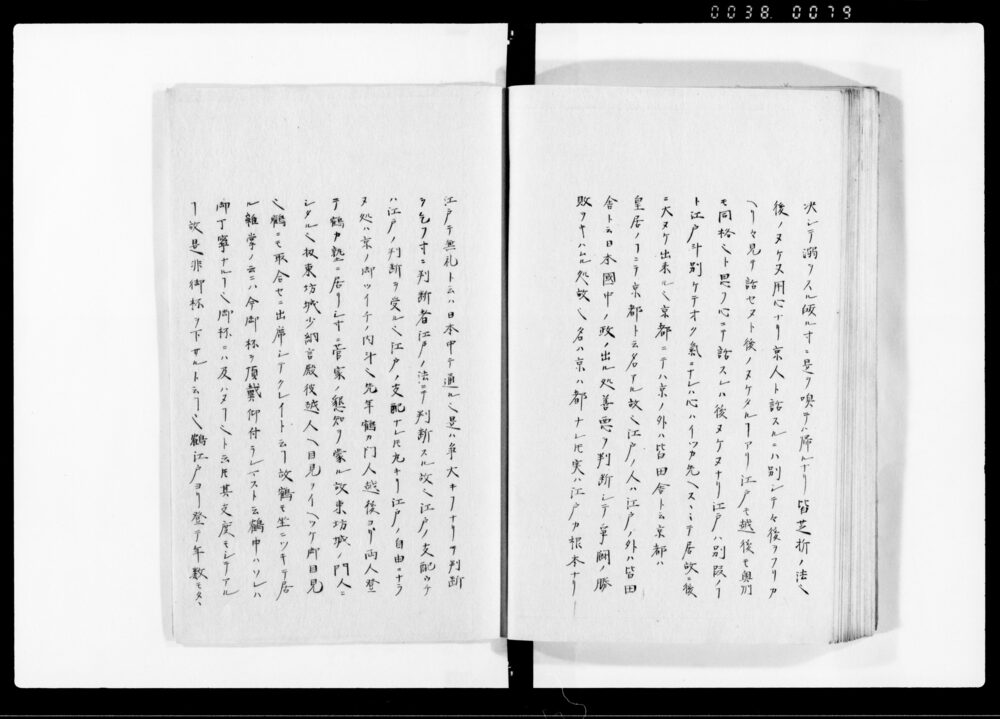 0038 0079
決シテ溺ヲスル故ルナニ是ヲ喫テハ帰ルナリ皆芝折ノ法ヘ
後ノヌケヌ用心ナリ京人ト話スルニハ別シテ々後ヲフリカ
ヘリ々見テ話セヌト後ノヌケタルヿアリ江戸モ越後モ奥州
モ同格ヘト思フ心ニテ話スレハ後ヌケヌナリ江戸ハ別段ノヿ
ト江戸斗別ケテオク氣ニナレハ心ハイツカ先ヘスヽミテ居故ニ後
ニ大ヌケ出来ルヘ京都ニテハ京ノ外ハ皆田舎ト云京都ハ
皇居ノヿニテ京都ト云名アル故ヘ江戸ノ人ハ江戸ノ外ハ皆田
舎ト云日本國中ノ政ノ出ル処善悪ヲ判断シテ争闘ノ勝
敗ヲキハムル処故ヘ名ハ京ハ都ナレ𪜈実ハ江戸カ根本ナリ
江戸テ無礼ト云ハ日本中テ通ルヘ是ハ争大キフナリヲ判断
ヲ乞フオニ判断者江戸ノ法ニテ判断スル故ヘ江戸ノ支配ウケテ
ハ江戸ノ判断ヲ受ルヘ江戸ノ支配ナレ𪜈丸キリ江戸ノ自由ニナラ
ヌ処ハ京ノ御ツイチノ内斗ヘ先年鶴カ門人越後ヨリ両人登
テ鶴カ塾ニ居リシオニ菅家ノ懇知ヲ蒙ル故東坊城ノ門人ニ
シタルヘ扨東坊城少納言殿彼越人ヘ目見ヲイヽツケ御目見
ヘ鶴ニモ取合セニ出席シテクレイト云ヿ故鶴モ坐ニツキテ居
ル雑掌ノ云ニハ今御杯ヲ頂戴仰付ラレマスト云鶴申ハソレハ
御丁寧ナルヿヘ御杯ニハ及ハヌヿヘト云𪜈其支度モシテアル
ヿ故是非御杯ヲ下サルト云ヿヘ鶴江戸ヨリ登テ年数モタヽ